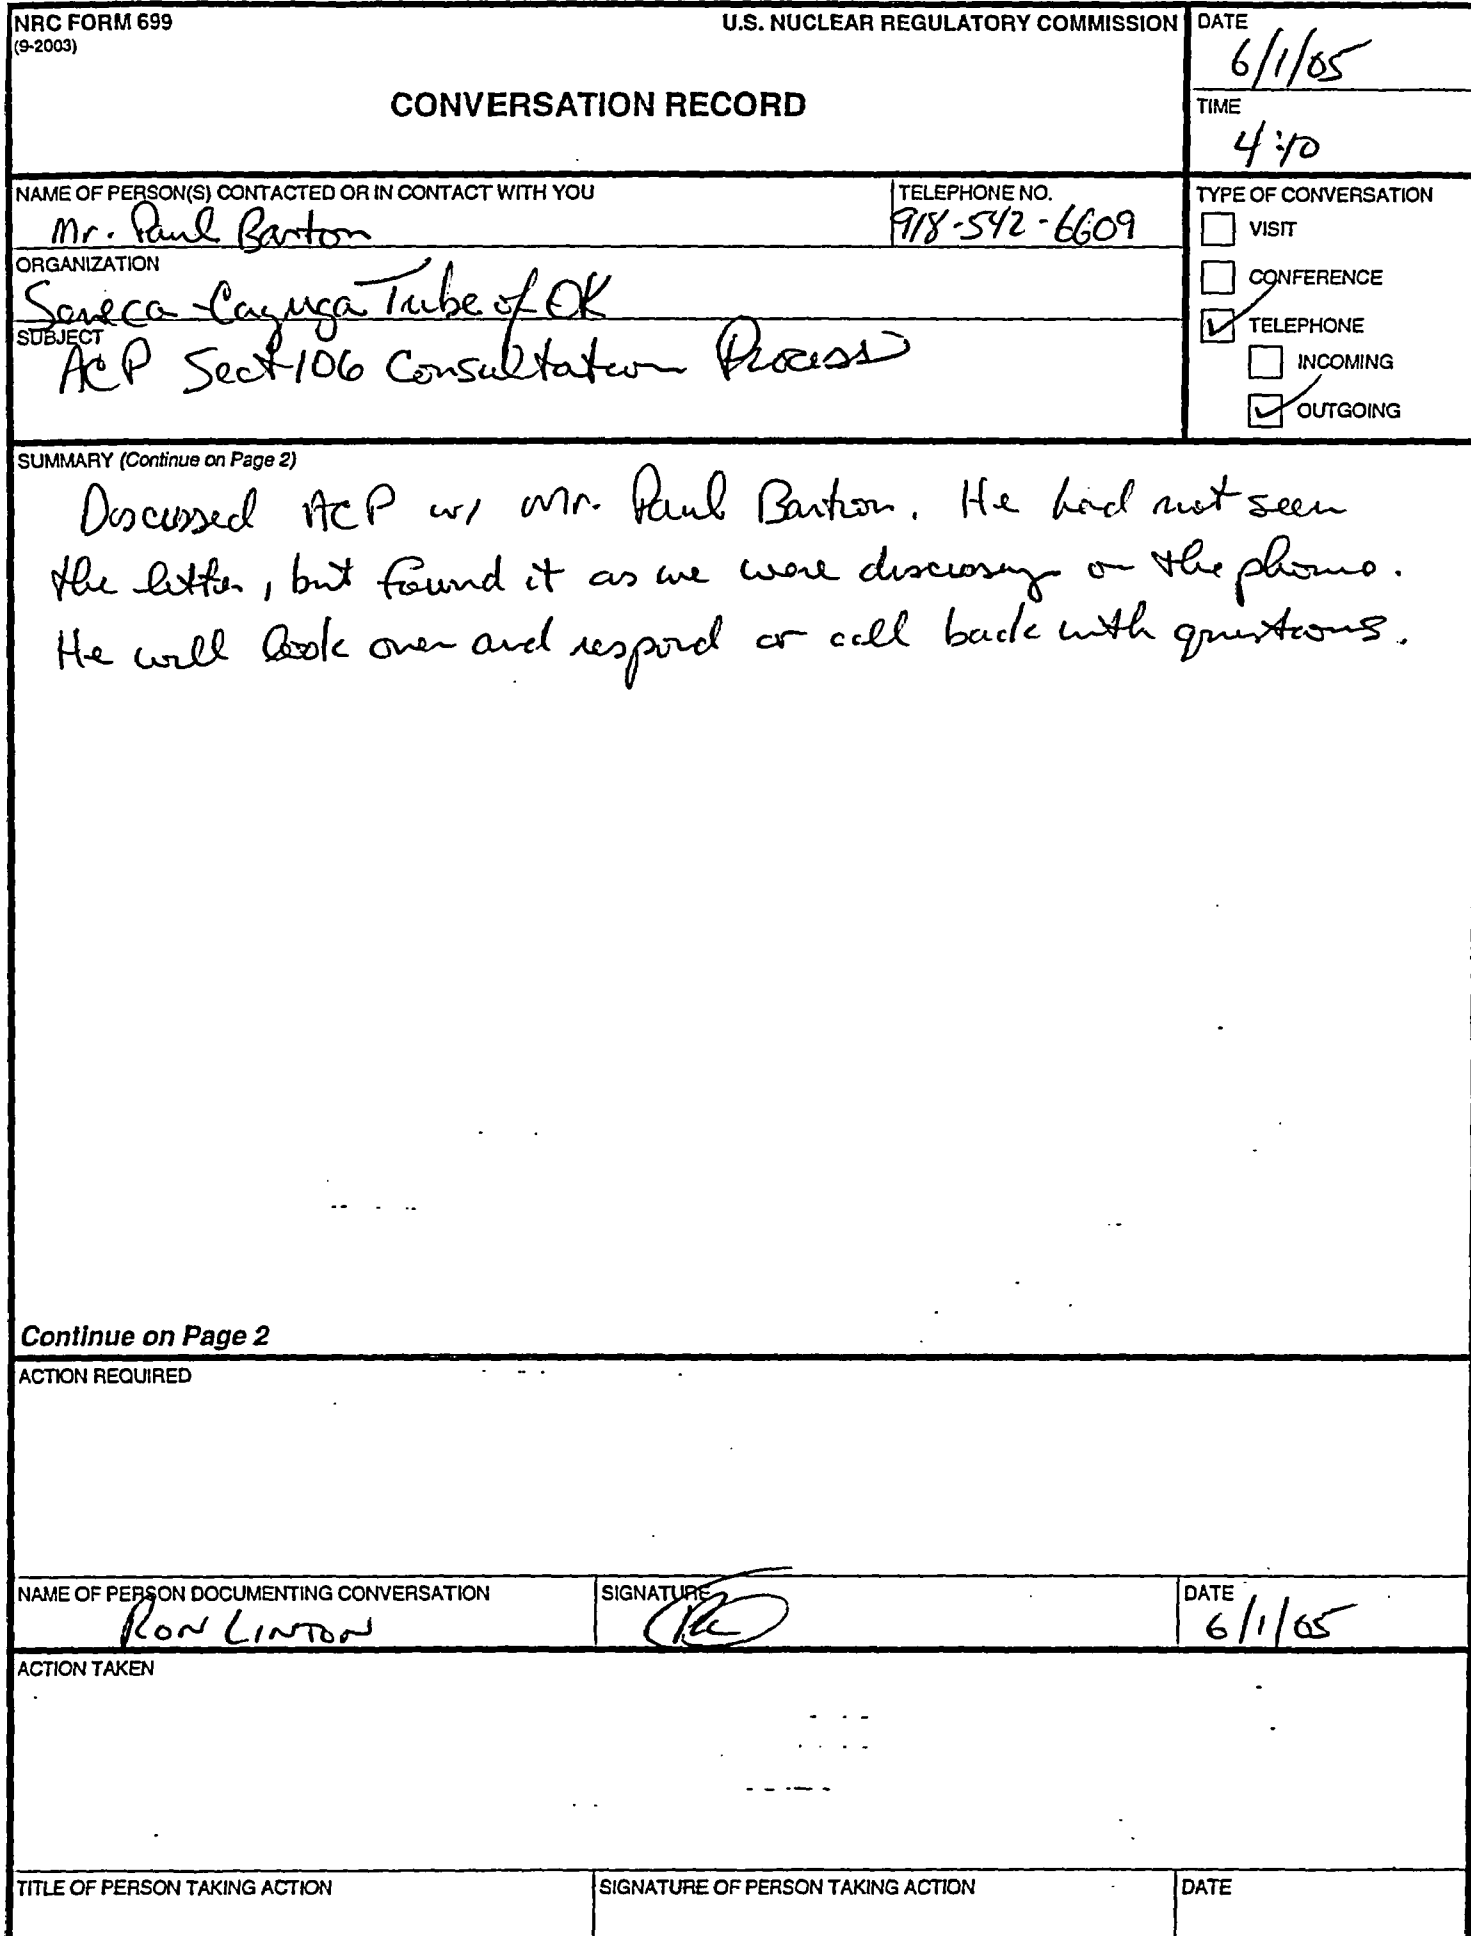 NRC FORM 699
(9-2003)
U.S. NUCLEAR REGULATORY COMMISSION
CONVERSATION RECORD
DATE
6/1/05
TIME
4:10
NAME OF PERSON(S) CONTACTED OR IN CONTACT WITH YOU
Mr. Paul Barton
TELEPHONE NO.
918-542-6609
TYPE OF CONVERSATION
VISIT
CONFERENCE
TELEPHONE
INCOMING
OUTGOING
ORGANIZATION
Seneca-Cayuga Tribe of OK
SUBJECT
ACP Sect 106 Consultation Process
SUMMARY (Continue on Page 2)
Discussed ACP w/ Mr. Paul Barton. He had not seen
the letter, but found it as we were discussing on the phone.
He will look over and respond or call back with questions.
Continue on Page 2
ACTION REQUIRED
NAME OF PERSON DOCUMENTING CONVERSATION
RON LINTON
SIGNATURE
DATE
6/1/05
ACTION TAKEN
TITLE OF PERSON TAKING ACTION
SIGNATURE OF PERSON TAKING ACTION
DATE